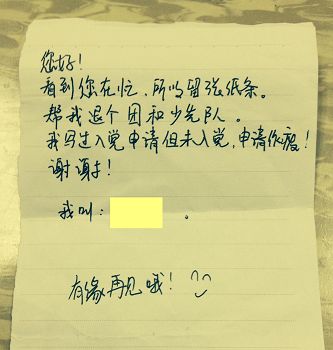 您好！
看到您在忙，所以留张纸条。
帮我退个团和少先队。
我写过入党申请但未入党，申请作废！
谢谢！
我叫： 。
有缘再见哦！